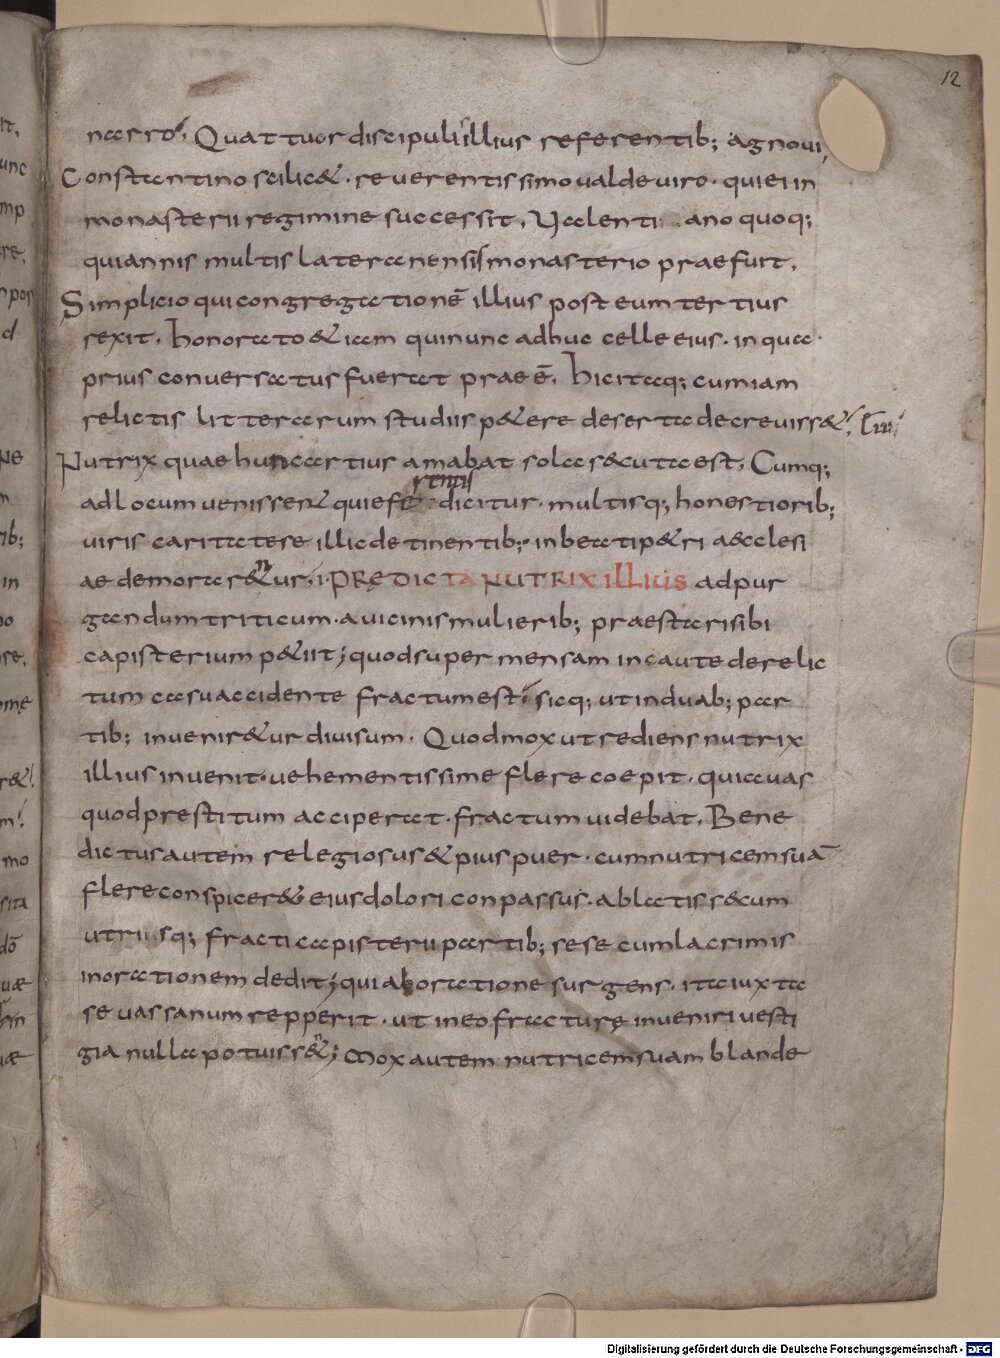 12
narro, Quattuor discipulis illius referentib; agnovi,
Constantino scilic&, reverentissimo valde viro, qui ei in
monasterii regimine successit, Valenti ano quoq;
qui annis multis lateranensis monasterio praefuit,
Simplicio qui congregationē illius post eum tertius
rexit, honorato &iam qui nunc adhuc celle eius, in qua
prius conversatus fuerat praeē. hic itaq; cum iam
relictis litterarum studiis p&ere deserta decreviss&,
Nutrix quae hunc artius amabat sola s&cuta est, Cumq;
ad locum venissen& qui efe rentis dicitur, multisq; honestiorib;
viris caritate se illic detinentib; in beati p&ri aecclesi
ae demorar&nur, PRĘDICTA NUTRIX ILLIUS ad pur
gandum triticum a vicinis mulierib; praestari sibi
capisterium p&iit; quod super mensam incaute derelic
tum casu accidente fractum est, sicq; ut in duab; par
tib; inveniр&ur divisum. Quod mox ut rediens nutrix
illius invenit, vehementissime flere coepit, quia vas
quod prestitum acciperat, fractum videbat, Bene
dictus autem relegiosus & pius puer, cum nutricem suā
flere conspicer& eius dolori conpassus, ablatis s&cum
utriusq; fracti capisterii partib; sese cum lacrimis
in orationem dedit; qui ab oratione surgens, ita iuxta
se vas sanum repperit, ut in eo fracturę inveniri vesti
gia nulla potuiss&; Mox autem nutricem suam blande
Digitalisierung gefördert durch die Deutsche Forschungsgemeinschaft - DFG